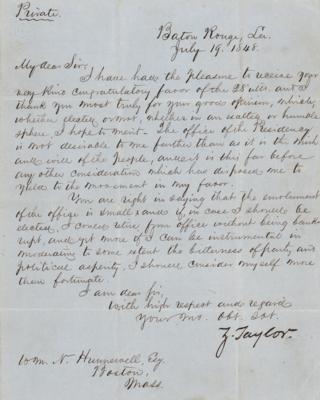 Private.
Baton Rouge, La.
July 19. 1848.
My dear Sir,
I have had the pleasure to receive your
very kind congratulatory favor of the 28 ult. and I
thank you most truly for your good opinion, which,
whether elected or not, whether in an exalted or humble
sphere, I hope to merit. The office of the Presidency
is not desirable to me farther than as it is the wish
and will of the People, and it is this far before
any other consideration which has disposed me to
yield to the movement in my favor.
You are right in saying that the emolument
of the office is small and if, in case I should be
elected, I could retire from office without being bank-
rupt, and yet more if I can be instrumental in
moderating to some extent the bitterness of party and
political asperity, I should consider myself more
than fortunate.
I am dear Sir,
With high respect and regard
Your Obt. Svt.
Z. Taylor.
Wm. N. Hunnewell Esq.
Boston,
Mass.